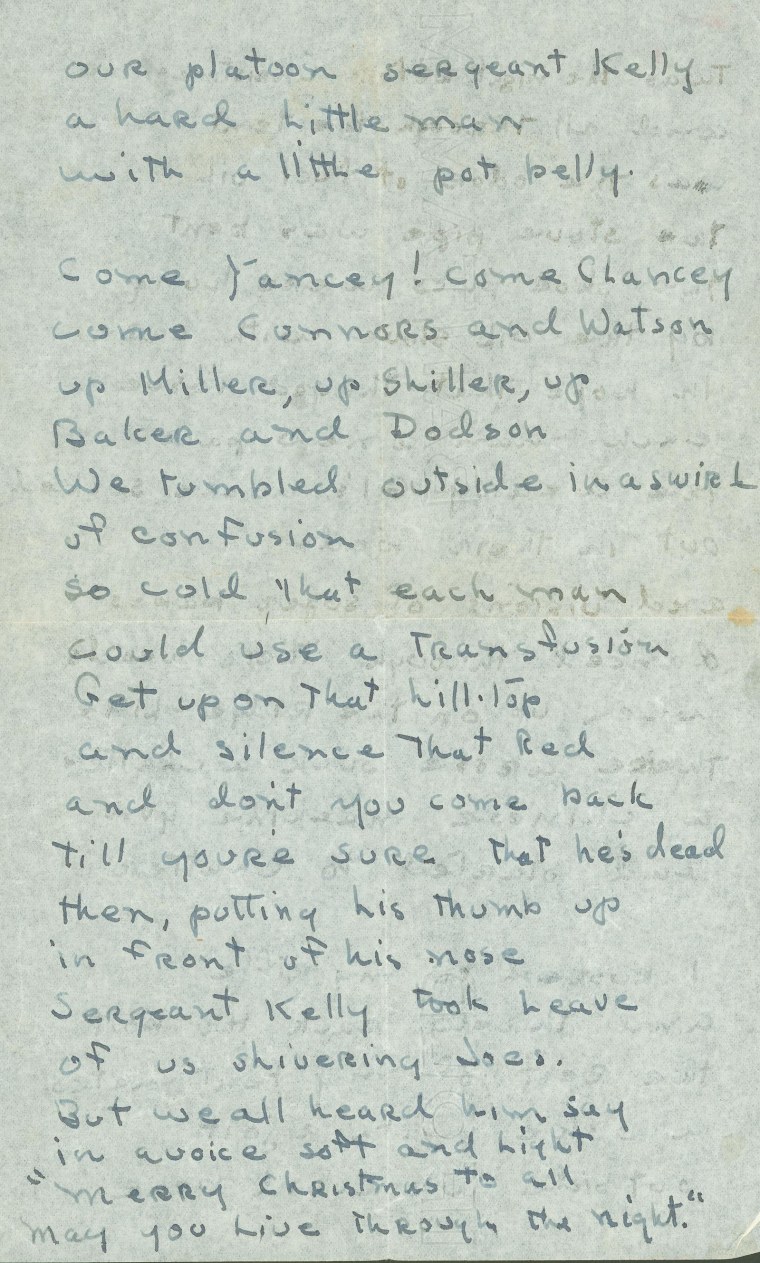 our platoon sergeant Kelly
a hard little man
with a little pot belly.
Come Yancey! come Chancey
come Connors and Watson
up Miller, up Shiller, up
Baker and Dodson
We tumbled outside in a swirl
of confusion
so cold that each man
could use a transfusion
Get up on that hill-top
and silence that Red
and don't you come back
till you're sure that he's dead
then, putting his thumb up
in front of his nose
Sergeant Kelly took leave
of us shivering Joes.
But we all heard him say
in a voice soft and light
"Merry Christmas to all
may you live through the night."